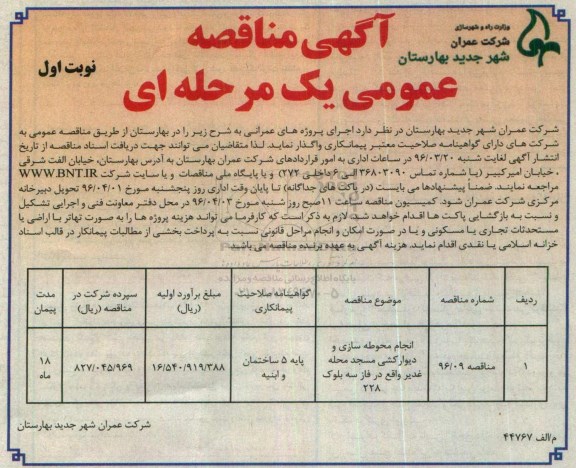 وزارت راه و شهرسازی
شرکت عمران
شهر جدید بهارستان
آگهی مناقصه
عمومی یک مرحله ای
نوبت اول
شرکت عمران شهر جدید بهارستان در نظر دارد اجرای پروژه های عمرانی به شرح زیر را در بهارستان از طریق مناقصه عمومی به
شرکت های دارای گواهینامه صلاحیت معتبر پیمانکاری واگذار نماید. لذا متقاضیان می توانند جهت دریافت اسناد مناقصه از تاریخ
انتشار آگهی لغایت شنبه ۹۶/۰۳/۲۰ در ساعات اداری به امور قراردادهای شرکت عمران بهارستان به آدرس بهارستان، خیابان الفت شرقی
، خیابان امیرکبیر (یا شماره تماس ۳۶۸۰۳۰۹۰ الی ۶ داخلی ۲۷۴) و یا پایگاه ملی مناقصات و یا سایت شرکت WWW.BNT.IR
مراجعه نمایند. ضمناً پیشنهادها می بایست (در پاکت های جداگانه) تا پایان وقت اداری روز پنجشنبه مورخ ۹۶/۰۴/۰۱ تحویل دبیرخانه
مرکزی شرکت عمران شود. کمیسیون مناقصه ساعت ۱۱صبح روز شنبه مورخ ۹۶/۰۴/۰۳ در محل دفتر معاونت فنی و اجرایی تشکیل
و نسبت به بازگشایی پاکت ها اقدام خواهد شد. لازم به ذکر است که کارفرما می تواند هزینه پروژه ها را به صورت تهاتر با اراضی یا
مستحدثات تجاری یا مسکونی و یا در صورت امکان و انجام مراحل قانونی نسبت به پرداخت بخشی از مطالبات پیمانکار در قالب اسناد
خزانه اسلامی یا نقدی اقدام نماید. هزینه آگهی به عهده برنده مناقصه می باشد.
پایگاه اطلاع رسانی مناقصه و مزایده
ردیف
شماره مناقصه
موضوع مناقصه
گواهینامه صلاحیت
پیمانکاری
مبلغ برآورد اولیه
(ریال)
سپرده شرکت در
مناقصه (ریال)
مدت
پیمان
۱
مناقصه ۹۶/۰۹
انجام محوطه سازی و
دیوارکشی مسجد محله
غدیر واقع در فاز سه بلوک
۲۲۸
پایه ۵ ساختمان
و ابنیه
۱۶/۵۴۰/۹۱۹/۳۸۸
۸۲۷/۰۴۵/۹۶۹
۱۸
ماه
شرکت عمران شهر جدید بهارستان
م/الف ۴۴۷۶۷